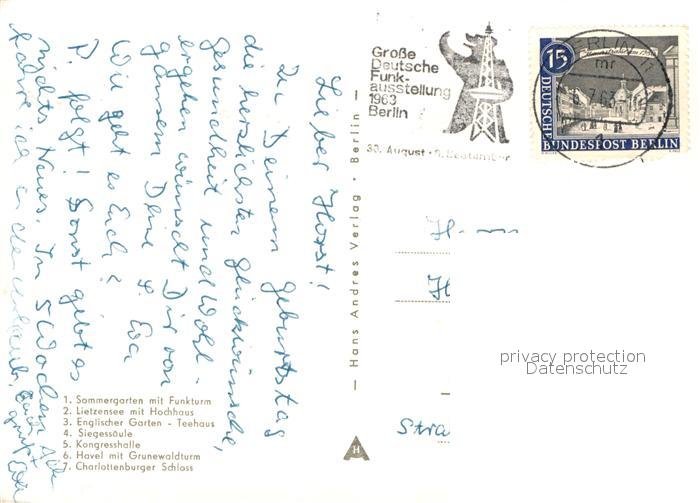 Große
Deutsche
Funk-
ausstellung
1963
Berlin
30. August - 8. September
15
DEUTSCHE
BUNDESPOST BERLIN
BERLIN
Lieber Horst!
Zu Deinem Geburtstag
die herzlichsten Glückwünsche,
Gesundheit und Wohl-
ergehen wünscht Dir von
ganzem
Wie geht es Euch?
P. folgt! Sonst gibt es
nichts Neues. In 5 Wochen
fahre ich in den Urlaub.
Hans Andres Verlag · Berlin
H
H
Stra
privacy protection
Datenschutz
1. Sommergarten mit Funkturm
2. Lietzensee mit Hochhaus
3. Englischer Garten - Teehaus
4. Siegessäule
5. Kongresshalle
6. Havel mit Grunewaldturm
7. Charlottenburger Schloss